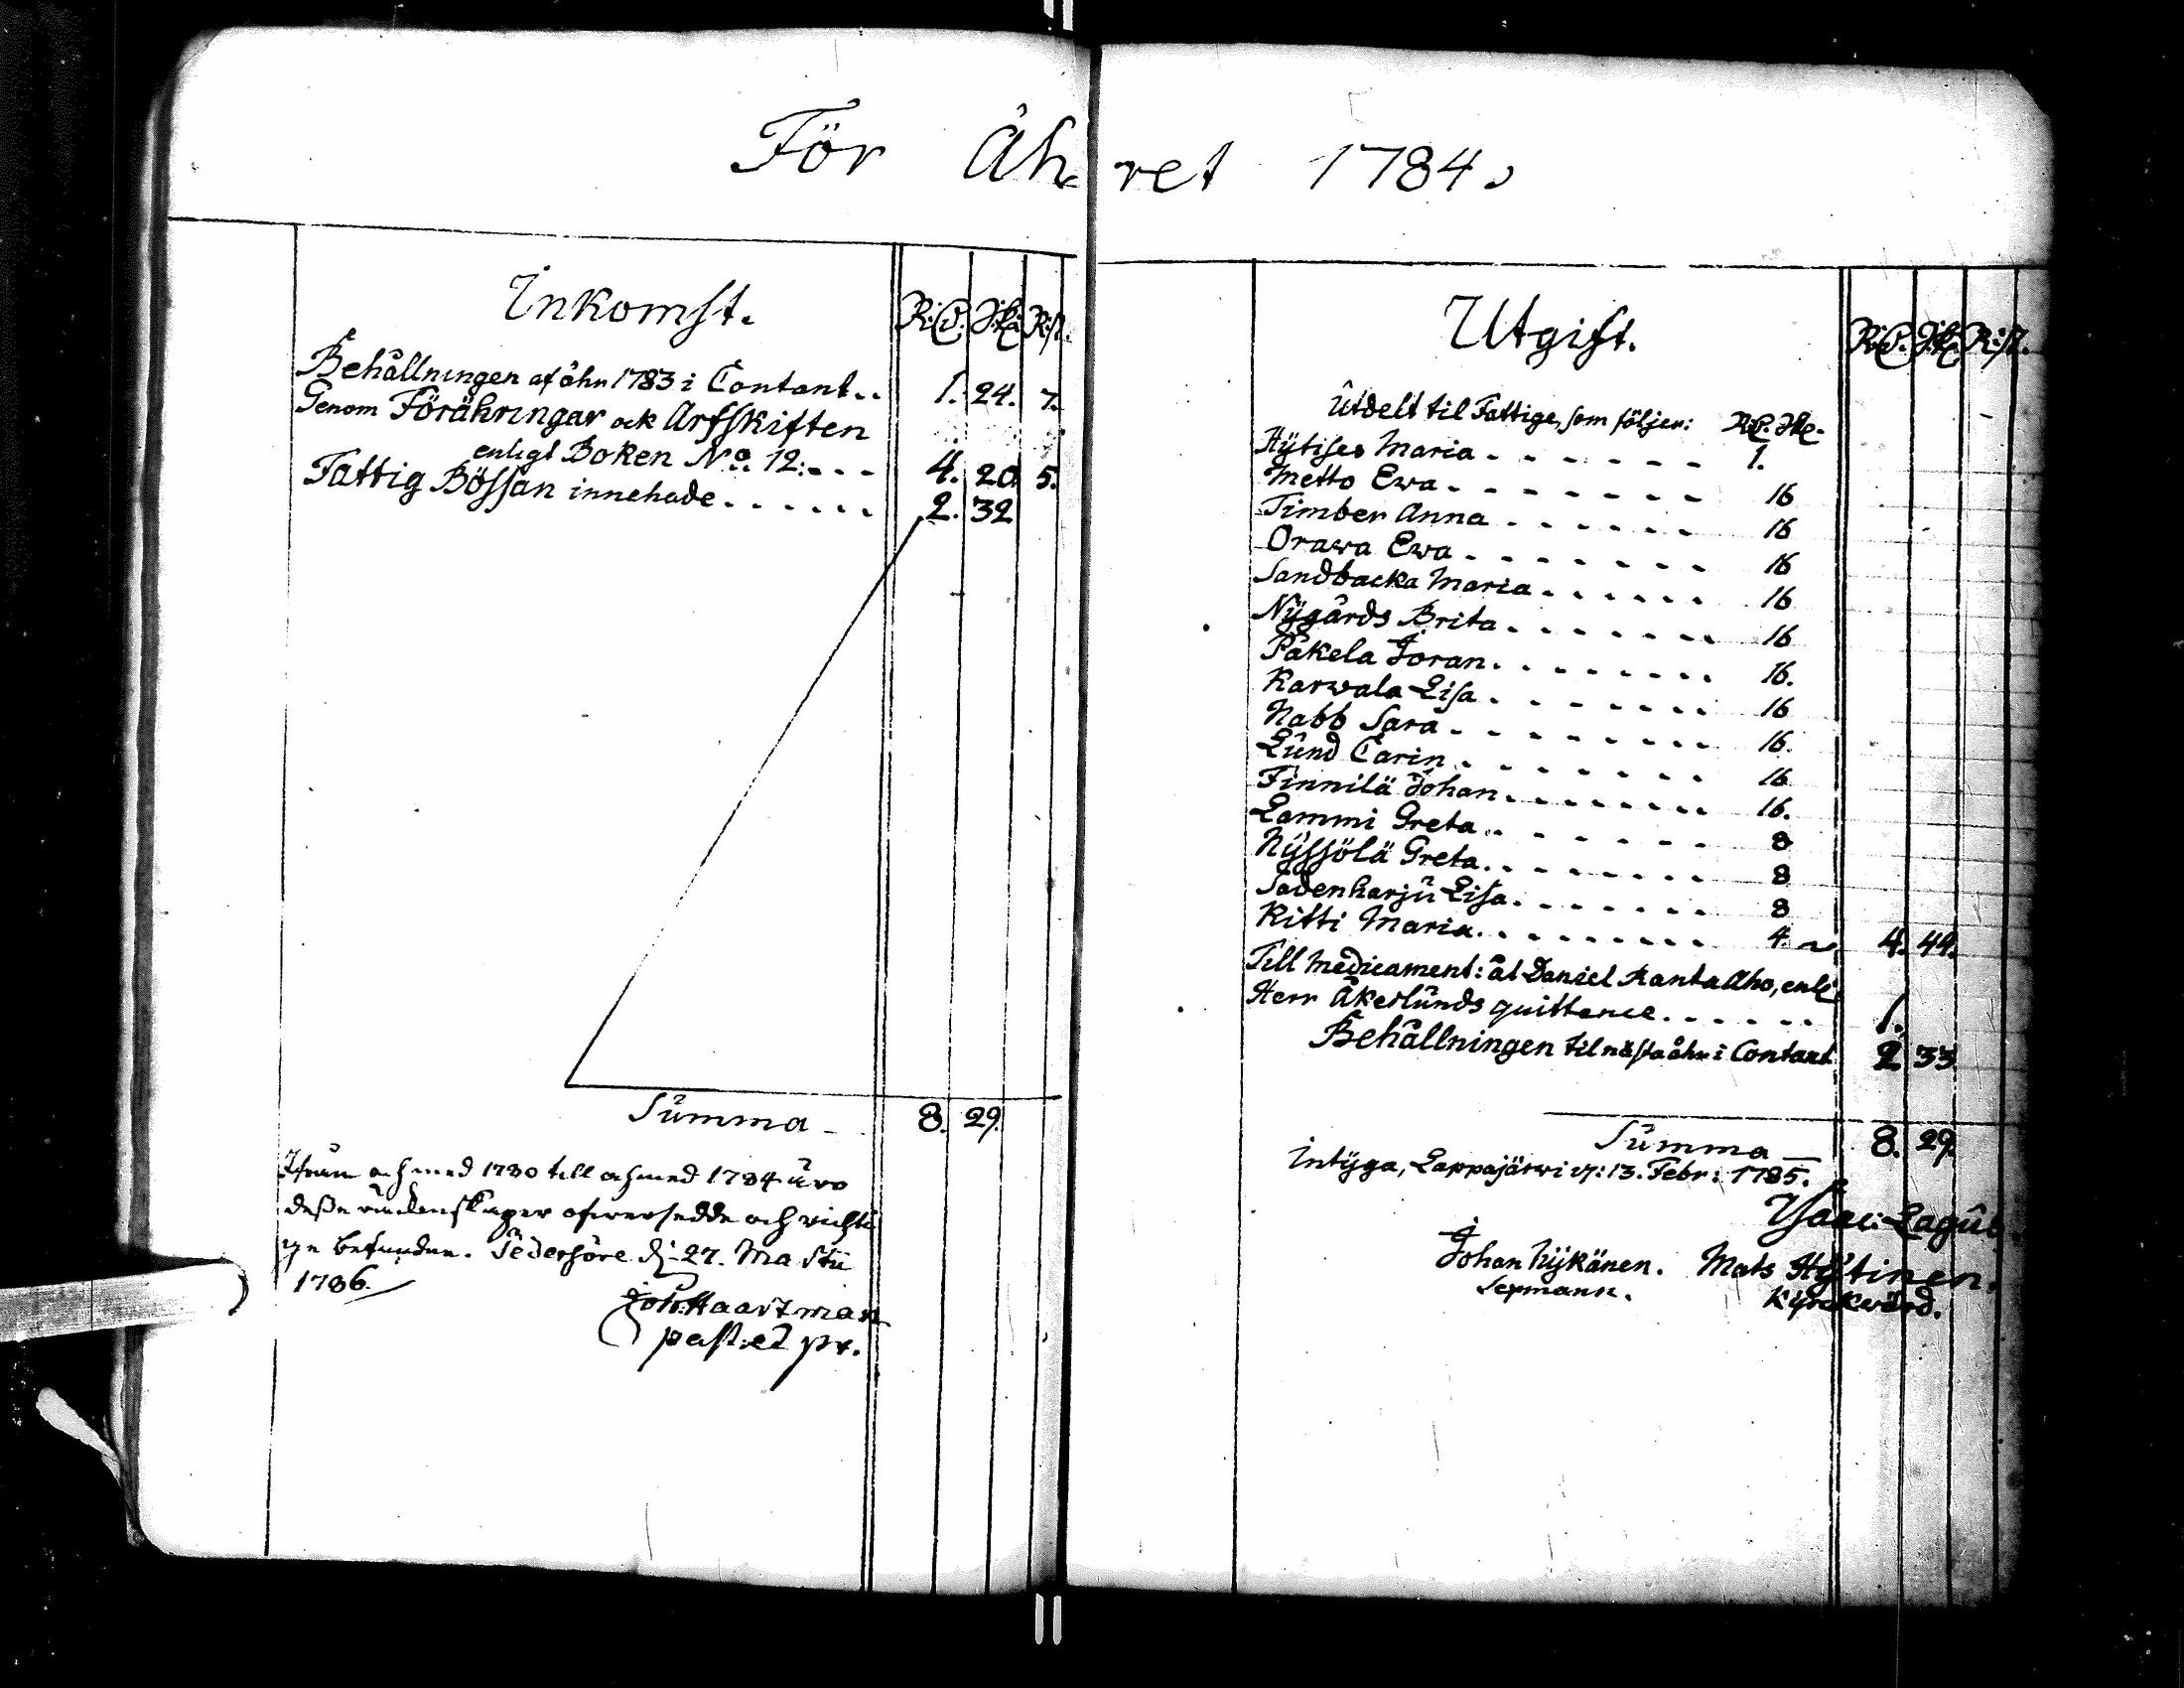 För Åhret 1784.
Inkomst. R:d. Sk: R:st.
Behållningen af åhr 1783 i Contant.. 1. 24. 7.
Genom Förähringar ock Arfskiften
enligt Boken No. 12:... 4. 20. 5.
Fattig Bössan innehade...... 2. 32
Summa 8. 29.
Ifrån och med 1780 till och med 1784 äro
desse räkenskaper öfwersedde och richti
ge befundne. Pedersöre d: 27. Martii
1786.
Joh: Haartman
past: et pr.
Utgift. R:d. Sk: R:st.
Utdelt til Fattige, som följer: R:d. Sk.
Hÿtises Maria....... 1.
Metto Ewa........ 16
Timber Anna...... 16
Orawa Ewa....... 16
Sandbacka Maria...... 16
Nÿgårds Brita....... 16
Pakela Joran........ 16.
Karwala Lisa....... 16
Nabb Sara......... 16.
Lund Carin....... 16
Finnilä Johan........ 16.
Lammi Greta....... 8
Nÿssölä Greta........ 8
Sadenharju Lisa....... 8
Kitti Maria......... 4 4. 44.
Till Medicament: åt Daniel Ranta Aho, enl:
Herr Åkerlunds quittence...... 1.
Behållningen til nästa åhr i Contant 2 33
Summa 8. 29.
Intÿga, Lappajärwi d: 13. Febr: 1785.
Isaac: Lagus
Johan Nÿkänen. Mats Hÿtinen.
Sexmann. Kÿrckwärd.